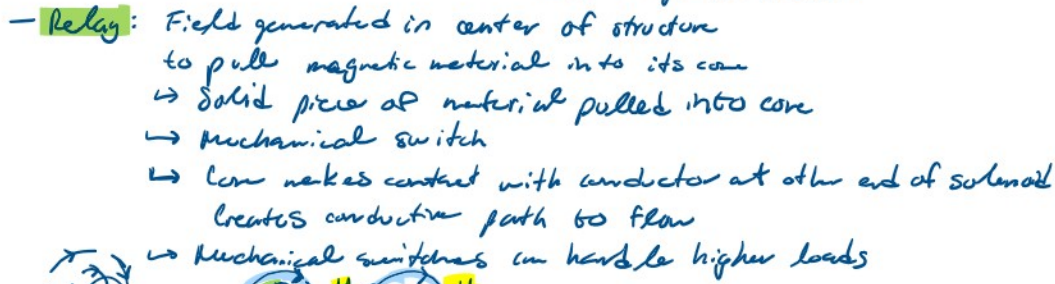 - Relay: Field generated in center of structure
to pull magnetic material into its core
↳ Solid piece of material pulled into core
↳ Mechanical switch
↳ Core makes contact with conductor at other end of solenoid
Creates conductive path to flow
↳ Mechanical switches can handle higher loads